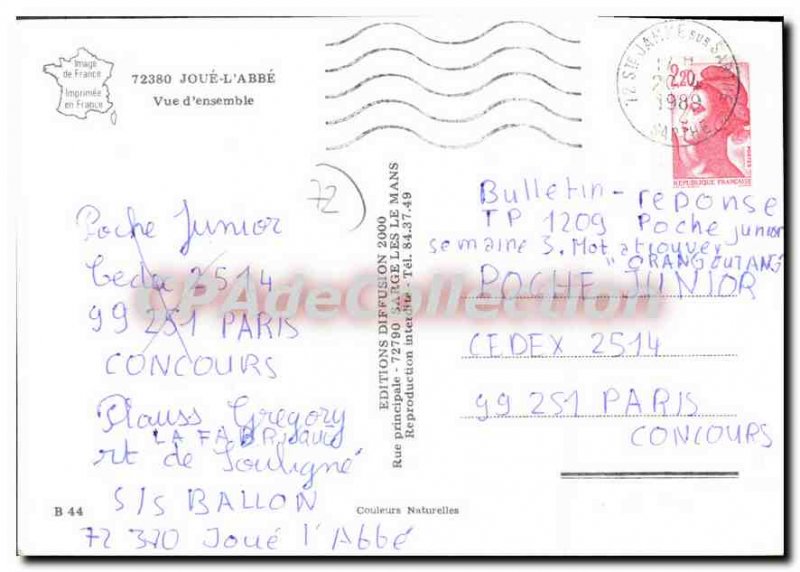 Image
de France
Imprimée
en France
72380 JOUÉ-L'ABBÉ
Vue d'ensemble
72
Poche Junior
Cedex 2514
99 251 PARIS
CONCOURS
Plauss Gregory
LA FABRIQUE
rt de Souligné
S/S BALLON
72 370 Joué l'Abbé
B 44
Couleurs Naturelles
EDITIONS DIFFUSION 2000
Rue principale - 72790 SARGE LES LE MANS
Reproduction interdite - Tél. 84.37.49
72 STE JAMME sur SARTHE
1989
SARTHE
2,20
POSTES
REPUBLIQUE FRANÇAISE
Bulletin - reponse
TP 1209 Poche junior
semaine 3. Mot a trouver
"ORANG OUTANG"
POCHE JUNIOR
CEDEX 2514
99 251 PARIS
CONCOURS
CPAdeCollection